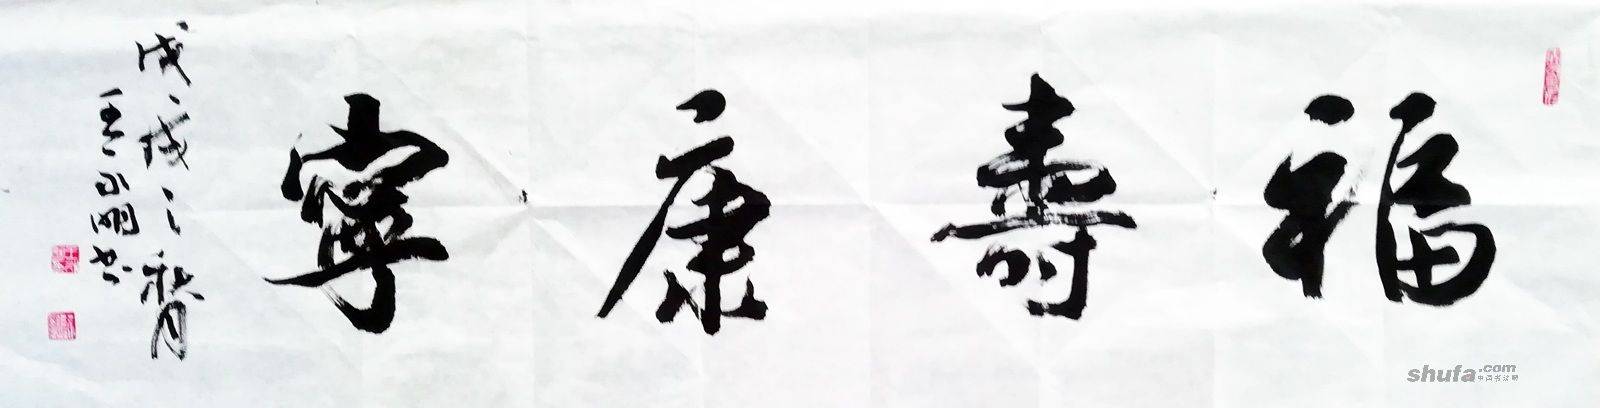 福壽康寧
戊戌之秋月
王永明书
shufa.com
中国书法网